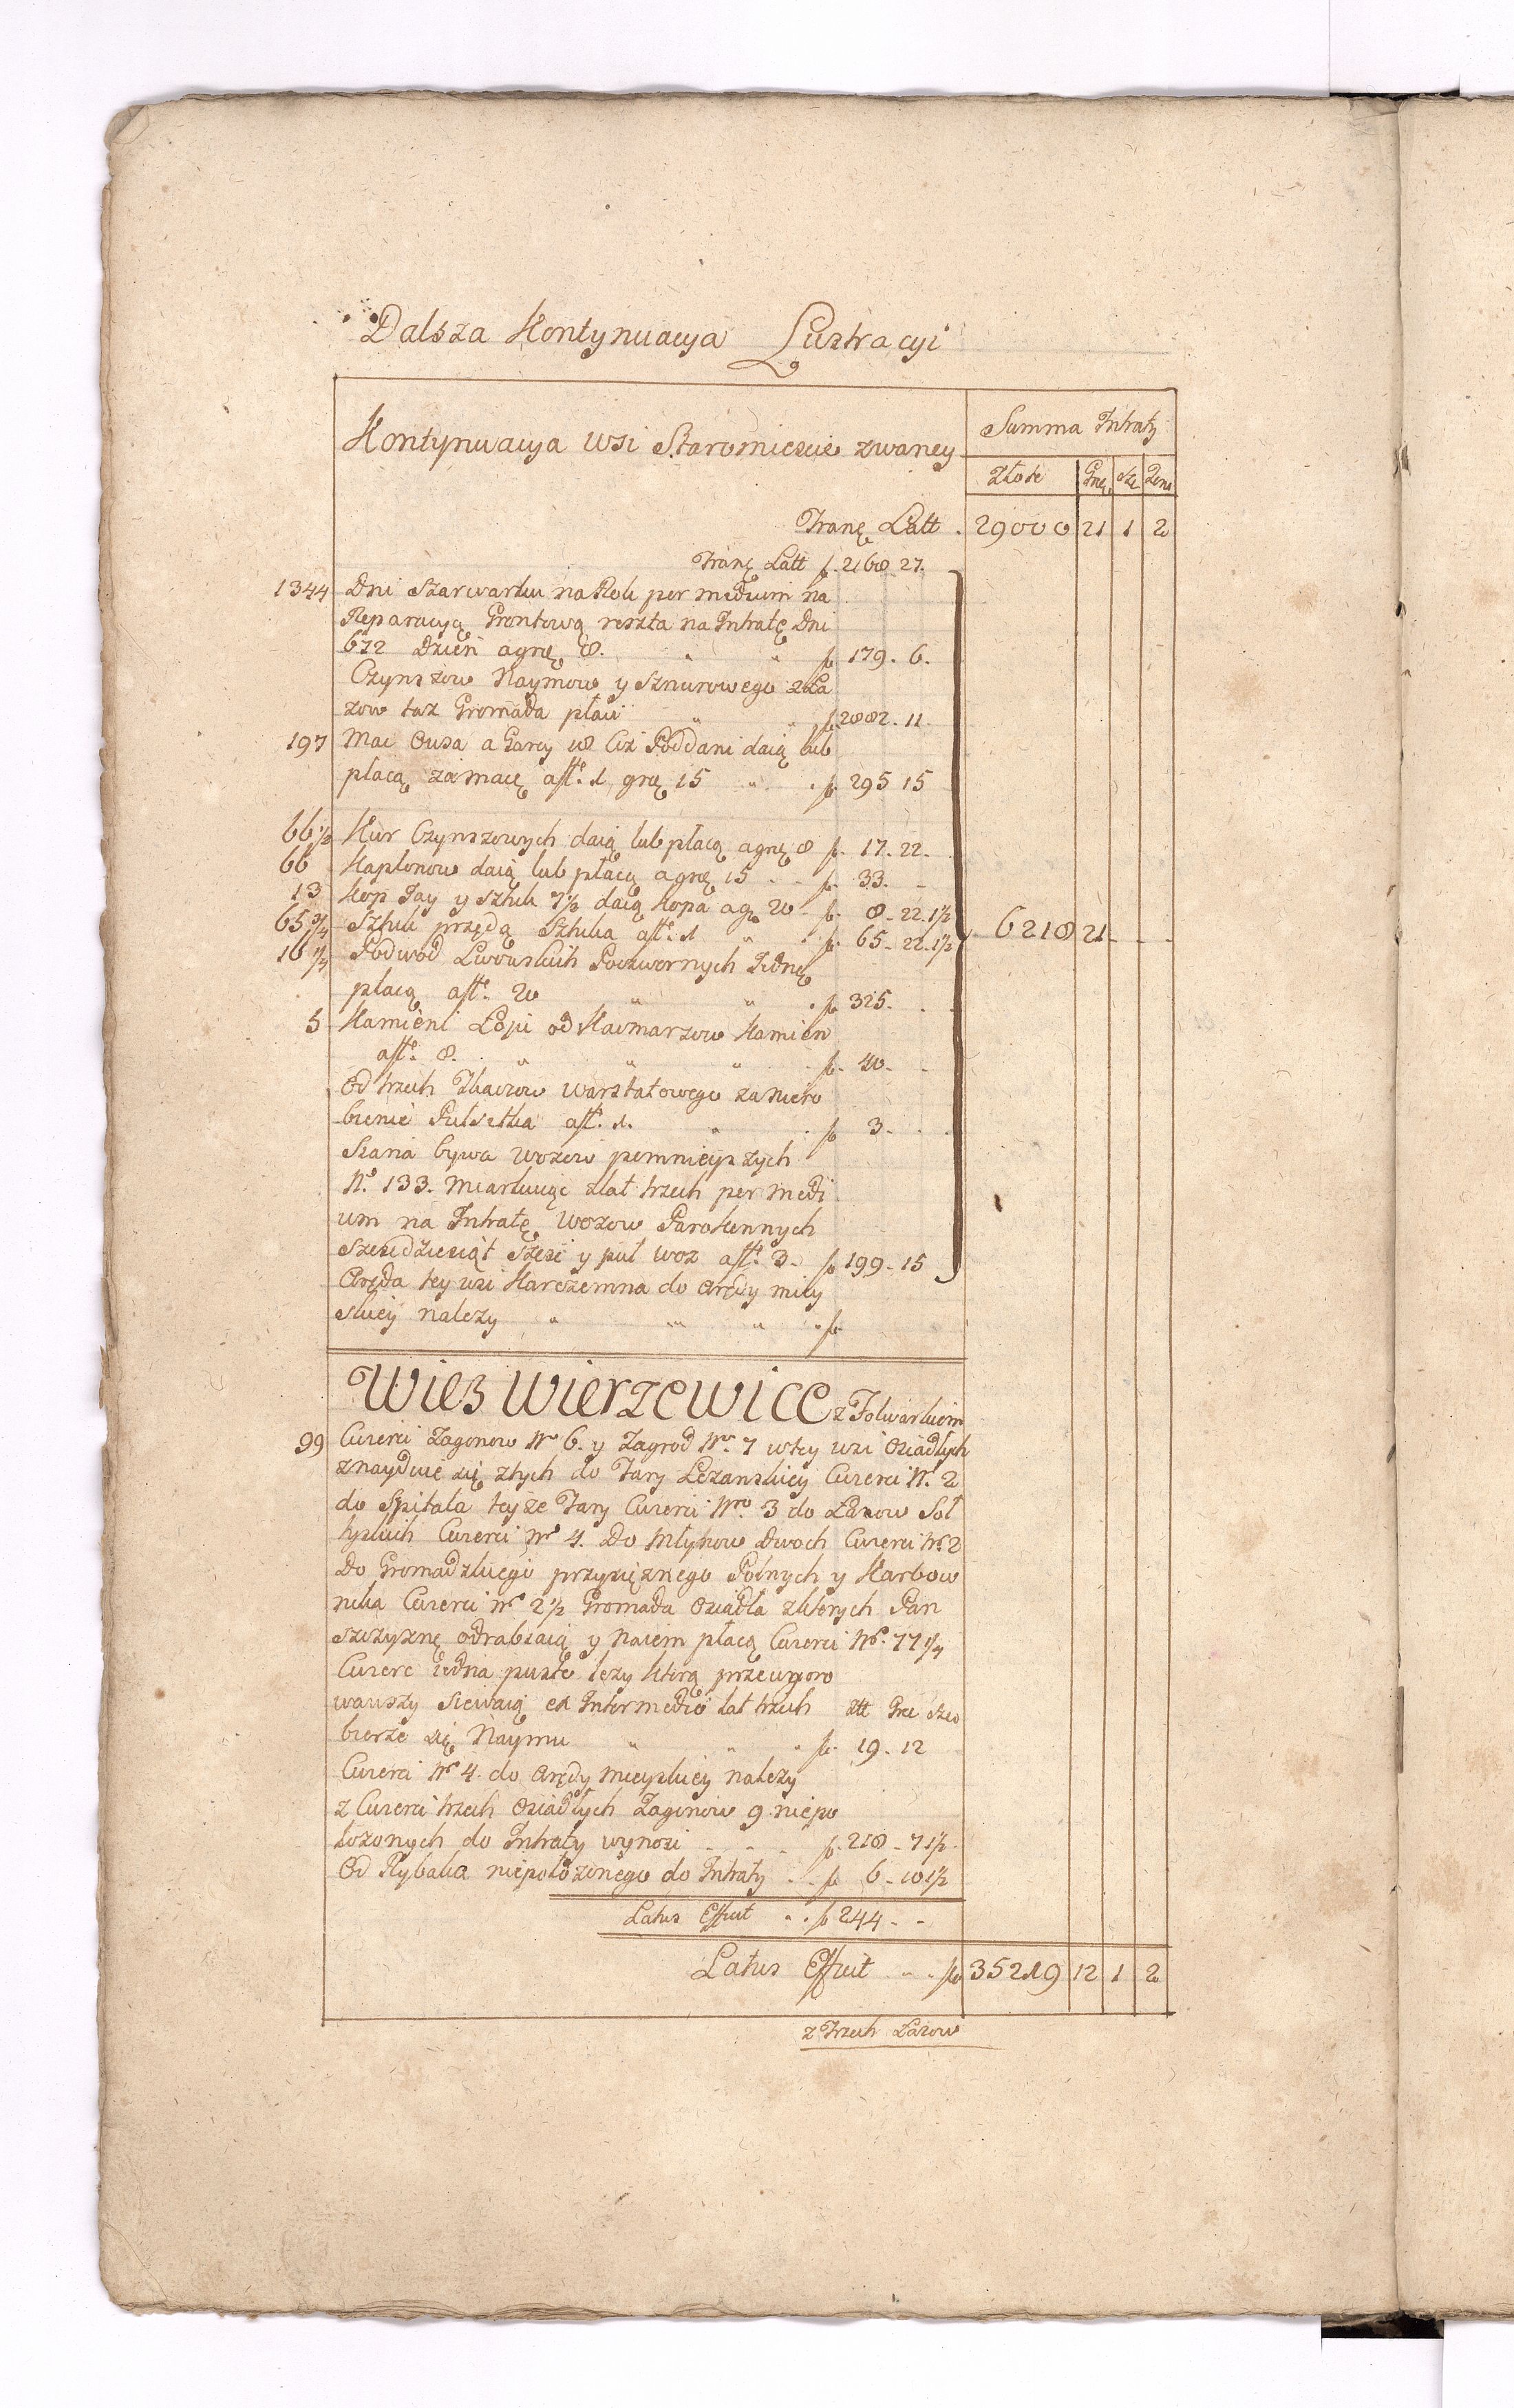 Dalsza Kontynuacya Lustracyi
Kontynuacya Wsi Staromiescie zwaney
Summa Intraty
Złote Grę. Sze Dena
Tranę Latt . 29000 21 1 2
Tranę Latt f. 2168. 27.
1344 Dni Szarwarku na Rok per medium na
Reparacyą Grontową reszta na Intratę Dni
672 Dzień a grę 8. f. 179. 6.
Czynszow Naymow y Sznurowego z Ła
zow taz Gromada płaci f. 2882. 11.
197 Mac Owsa a Garcy 18 Ciż Poddani daią lub
płacą za macę a ft. 1, grę 15 f. 295 15
66½ Kur Czynszowych daią lub płacą a grę 8 f. 17. 22.
66 Kapłonow daią lub płacą a grę 15 f. 33. -
13 Kop Jay y sztuk 7½ daią kopa a g. 20 f. 8. 22. 1½
65¾ Sztuk przędą Sztuka a ft. 1 f. 65. 22. 1½ 6218 21 - -
16¼ Podwod Lwowskich Poczwornych Jednę
płacą a ft. 20 f. 325.
5 Kamieni Łoju od Kacmarzow Kamien
a ft. 8. f. 40.
Od trzech Tkaczow warstatowego za niero
bienie Pulsetka a ft. 1. f. 3.
Siana bywa Wozow pomnieyszych
N. 133. miarkuiąc z lat trzech per medi
um na Intratę Wozow Parokonnych
Szescdziesiąt szesc y puł woz a ft. 3. f. 199. 15
Aręda tey wsi Karczemna do Arędy miey
skiey nalezy f.
Wies Wierzewice z Folwarkiem
99 Cwierci Zagonow Nro 6. y Zagrod Nro. 7 w tey wsi Osiadłych
znayduie się z tych do Fary Lezanskiey Cwierci N. 2
do Spitala teyze Fary Cwierci Nro 3 do Łanow Soł
tyskich Cwierci Nro 4. Do Młynow dwoch Cwierci N. 2
Do Gromadzkiego przysięznego Polnych y Karbow
nika Cwierci Nro 2½ Gromada Osiadła z ktorych Pan
szczyznę odrabiaią y naiem płacą Cwierci Nro. 77¼
Cwierc iedna pusto lezy ktorą przeuporo
wawszy siewaią ex Intermedio lat trzech Złt Gre Sze
bierze się Naymu f. 19. 12
Cwierci Nro 4. do Arędy mieyskiey nalezy
z Cwierci trzech Osiadłych Zagonow 9 niepo
łozonych do Intraty wynosi f. 218. 7 1½
Od Rybaka niepołozonego do Intraty f. 6. 10 1½
Latus Efficit f. 244. -
Latus Efficit f. 35219 12 1 2
z Trzech Lazow